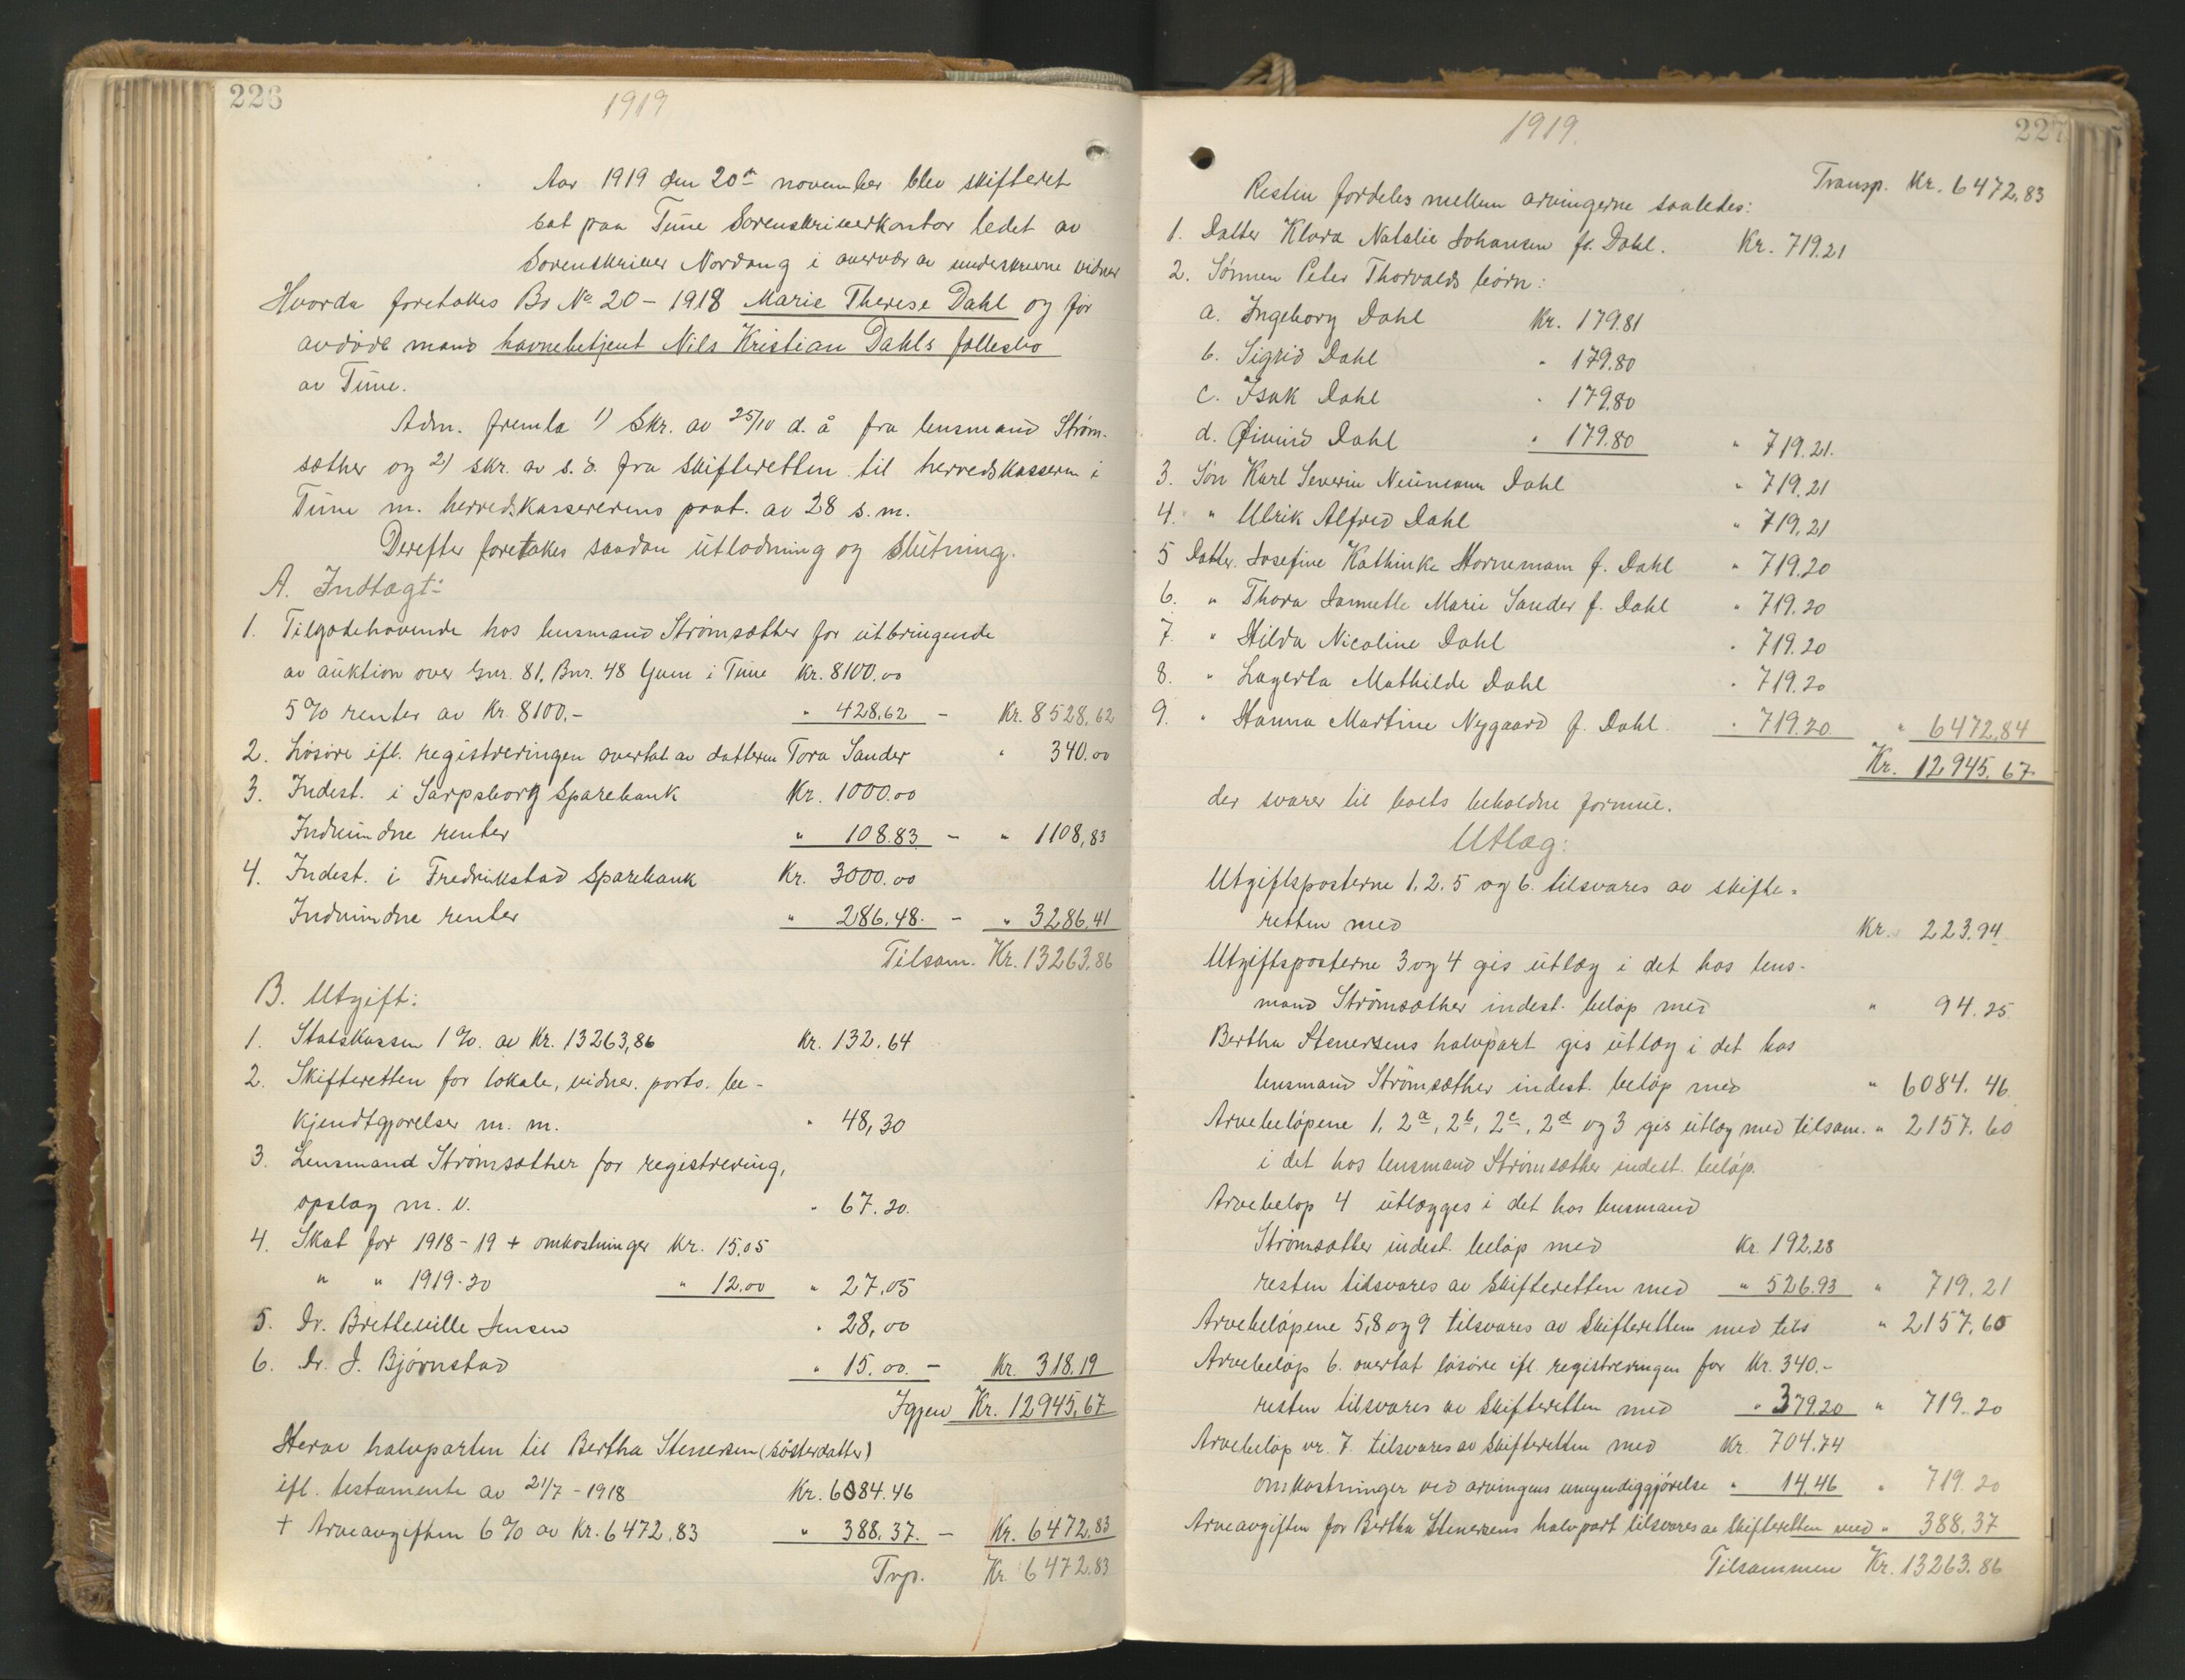 226
1919
Aar 1919 den 20de november blev skifteret
sat paa Tune Sorenskriverkontor ledet av
Sorenskriver Nordang i overvær av underskrevne vidner
Hvorda foretokes Bo No 20 - 1918 Marie Therese Dahl og før
avdøde mand havnebetjent Nils Kristian Dahls fællesbo
av Tune.
Adm. fremla 1) Skr. av 25/10 d. å fra lensmand Strøm-
sæther og 2) skr. av s. d. fra skifteretten til herredskasseren i
Tune m. herredskassererens paat. av 28 s. m.
Derefter foretokes saadan utlodning og slutning.
A. Indtægt:
1. Tilgodehavende hos lensmand Strømsæther for utbringende
av auktion over Gnr. 81, Bnr. 48 Yven i Tune Kr. 8100.00
5% renter av Kr. 8100.- " 428.62 - Kr. 8528.62
2. Løsøre ifl. registreringen overtat av datteren Tora Sander " 340.00
3. Indest. i Sarpsborg Sparebank Kr. 1000.00
Indvundne renter " 108.83 - " 1108,83
4. Indest. i Fredrikstad Sparebank Kr. 3000.00
Indvundne renter " 286.48. - " 3286.41
Tilsam. Kr. 13263,86
B. Utgift:
1. Statskassen 1%. av Kr. 13263,86 Kr. 132.64
2. Skifteretten for lokale, vidner. porto. be-
kjendtgjørelser m. m. " 48,30
3. Lensmand Strømsæther for registrering,
opslag m. v. " 67.20.
4. Skat for 1918-19 + omkostninger Kr. 15.05
" " 1919-20 " 12.00 " 27.05
5. Dr. Bretteville Jensen " 28,00
6. Dr. J. Bjørnstad " 15.00. - Kr. 318.19
Igjen Kr. 12945,67
Herav halvparten til Bertha Stenersen (søsterdatter)
ifl. testamente av 21/7 - 1918 Kr. 6084.46
+ Arveavgiften 6% av Kr. 6472.83 " 388.37. - Kr. 6472.83
Trp. Kr. 6472.83
1919.
227
Transp. Kr. 6472,83
Resten fordeles mellem arvingerne saaledes:
1. Datter Klara Natalie Johansen f. Dahl. Kr. 719.21
2. Sønnen Peter Thorvalds børn:
a. Ingeborg Dahl Kr. 179.81
b. Sigrid Dahl " 179.80
c. Isak Dahl " 179.80
d. Øivind Dahl " 179.80 " 719.21.
3. Søn Karl Severin Neumann Dahl " 719.21
4. " Ulrik Alfred Dahl " 719.21
5 Datter. Josefine Kathinka Hornemann f. Dahl " 719.20
6. " Thora Jannette Marie Sander f. Dahl " 719.20
7. " Hilda Nicoline Dahl " 719.20
8. " Lagerta Mathilde Dahl " 719.20
9. " Hanna Martine Nygaard f. Dahl. " 719.20 " 6472.84
Kr. 12945.67
der svarer til boets beholdne formue.
Utlæg:
Utgiftsposterne 1. 2. 5 og 6. tilsvares av skifte=
retten med Kr. 223.94
Utgiftsposterne 3 og 4 gis utlæg i det hos lens-
mand Strømsæther indest. beløp med " 94.25.
Bertha Stenersens halvpart gis utlæg i det hos
lensmand Strømsæther indest. beløp med " 6084.46
Arvebeløpene 1, 2a, 2b, 2c, 2d og 3 gis utlæg med tilsam. " 2157.60
i det hos lensmand Strømsæther indest. beløp.
Arvebeløp 4 utlægges i det hos lensmand
Strømsæther indest. beløp med Kr. 192.28
resten tilsvares av skifteretten med " 526.93 " 719.21
Arvebeløpene 5,8 og 9 tilsvares av Skifteretten med tils " 2157.60
Arvebeløp 6. overtat løsøre ifl. registreringen for Kr. 340.-
resten tilsvares av Skifteretten med " 379.20 " 719.20
Arvebeløp nr. 7. tilsvares av Skifteretten med Kr. 704.74
omkostninger ved arvingens umyndiggjørelse " 14.46 " 719.20
Arveavgiften for Bertha Stenersens halvpart tilsvares av Skifteretten med " 388.37
Tilsammen Kr. 13263.86